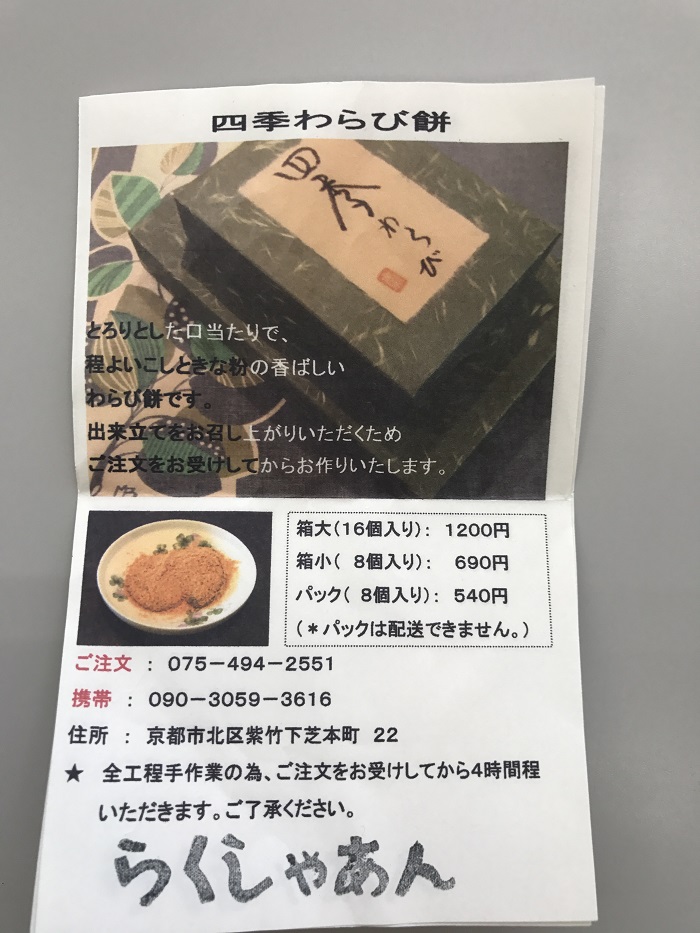 四季わらび餅
四季わらび
とろりとした口当たりで、
程よいこしときな粉の香ばしい
わらび餅です。
出来立てをお召し上がりいただくため
ご注文をお受けしてからお作りいたします。
箱大(16個入り): 1200円
箱小( 8個入り): 690円
パック( 8個入り): 540円
(*パックは配送できません。)
ご注文 : 075-494-2551
携帯 : 090-3059-3616
住所 : 京都市北区紫竹下芝本町 22
★ 全工程手作業の為、ご注文をお受けしてから4時間程
いただきます。ご了承ください。
らくしゃあん